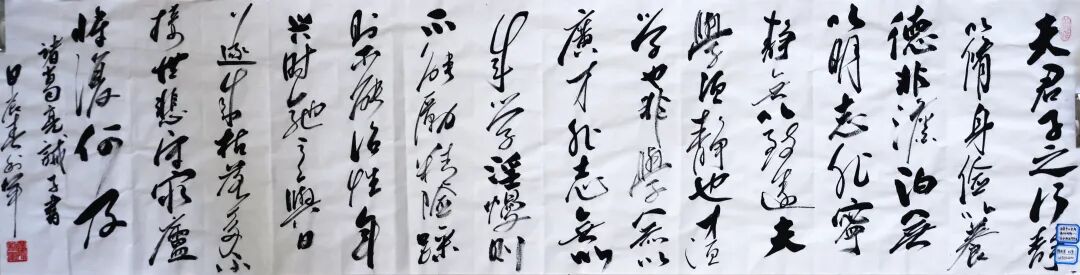 夫君子之行静
以脩身俭以養
德非澹泊無
以明志非寧
静無以致遠夫
學須静也才須
学也非學無以
廣才非志無以
成学淫慢则
不能勵精險躁
則不能治性年
與时馳意與日
去遂成枯落多不
接世悲守窮廬
將復何及
諸葛亮誡子書
甲辰春